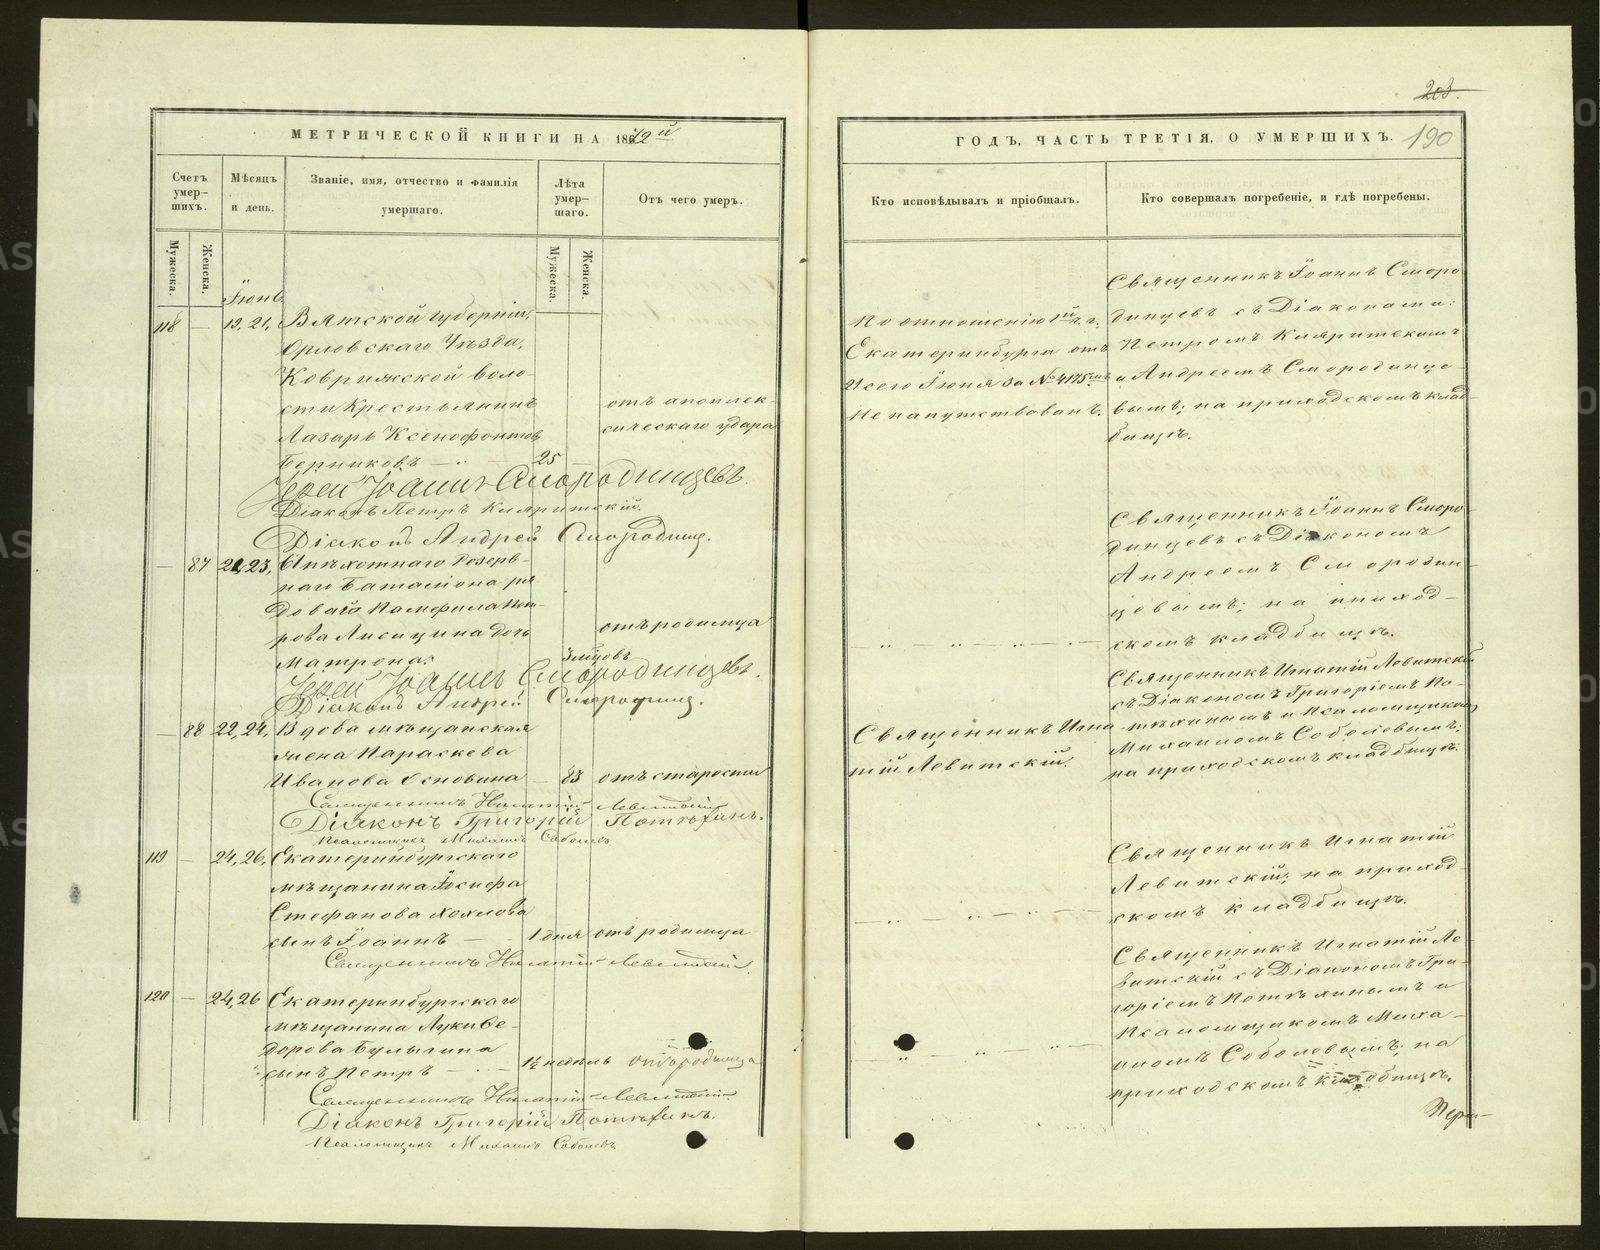 203.
МЕТРИЧЕСКОЙ КНИГИ НА 1862й
Счетъ умерших.
Мѣсяцъ и день.
Званіе, имя, отчество и фамилія умершаго.
Лѣта умершаго.
Отъ чего умеръ.
Мужеска.
Женска.
Мужеска.
Женска.
Іюнь
118 — 19, 21, Вятской губерніи,
Орловскаго Уѣзда,
Коврижской воло-
сти Крестьянинъ
отъ апоплек-
Лазарь Ксенофонтовъ
сическаго удара
Берниковъ 25
Іерей Іоаннъ Смородинцевъ.
Діаконъ Петръ
Діаконъ Андрей Смородинц.
— 87 21, 23, Пѣхотнаго резерв-
наго Баталіона ря
доваго Памфила Пет-
рова Лисицина дочь
отъ родимца
Матрона.
Іерей Іоаннъ Смородинцевъ.
Діаконъ Андрей Смородинц.
— 88 22, 24, Вдова мѣщанская
жена Параскева
Иванова Основина — 83 отъ старости
Священникъ Игнатій Левитскій
Діаконъ Григорій Потѣхинъ.
Псаломщикъ Михаилъ Соболевъ
119 — 24, 26, Екатеринбургскаго
мѣщанина Іосифа
Стефанова Хохлова
сынъ Іоаннъ — 1 дня отъ родимца
Священникъ Игнатій Левитскій
120 — 24, 26 Екатеринбургскаго
мѣщанина Луки Ѳе-
дорова Булыгина
сынъ Петръ — 1½ недѣль отъ родимца
Священникъ Игнатій Левитскій
Діаконъ Григорій Потѣхинъ.
Псаломщикъ Михаилъ Соболевъ
ГОДЪ, ЧАСТЬ ТРЕТІЯ, О УМЕРШИХЪ. 190
Кто исповѣдывалъ и пріобщалъ.
Кто совершалъ погребеніе, и гдѣ погребены.
Священникъ Іоаннъ Сморо
По отношенію
динцевъ съ Діаконами:
Екатеринбурга отъ
Петромъ
21 сего Іюня за № 4175
и Андреемъ Смородинце-
не напутствованъ.
вымъ; на приходскомъ клад-
бищѣ.
Священникъ Іоаннъ Сморо-
динцевъ съ Діакономъ
Андреемъ Смородин-
цевымъ; на приход-
скомъ кладбищѣ.
Священникъ Игнатій Левитскій
съ Діакономъ Григоріемъ По-
Священникъ Игна
тѣхинымъ и Псаломщикомъ
тій Левитскій.
Михаиломъ Соболевымъ;
на приходскомъ кладбищѣ.
Священникъ Игнатій
Левитскій; на приход-
скомъ кладбищѣ.
Священникъ Игнатій Ле-
витскій съ Діакономъ Гри-
горіемъ Потѣхинымъ и
Псаломщикомъ Миха-
иломъ Соболевымъ; на
приходскомъ кладбищѣ.